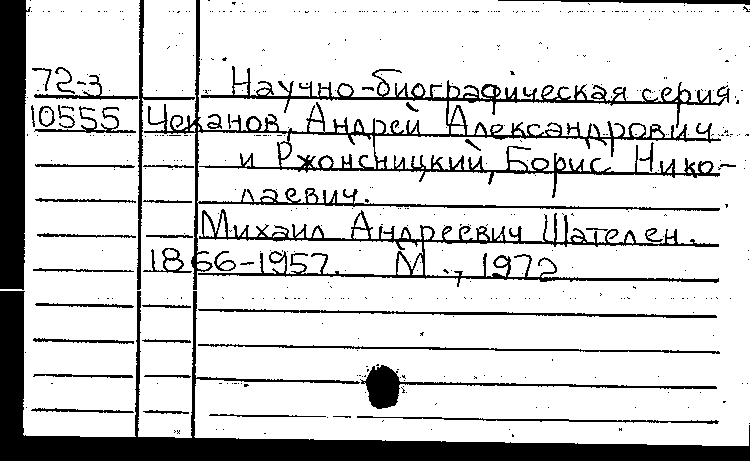 72-3 Научно-биографическая серия.
10555 Чеканов, Андрей Александрович
и Ржонсницкий, Борис Нико-
лаевич.
Михаил Андреевич Шателен.
1866-1957. М., 1972